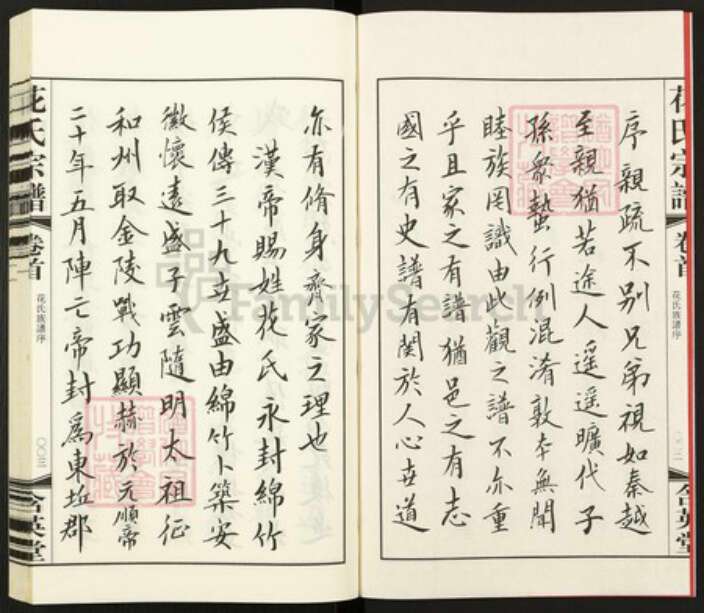 花氏宗譜
卷首
花氏族譜序
含英堂
序親疏不別兄弟視如秦越
至親猶若途人遥遥曠代子
孫衆蟄行例混淆敦本無聞
睦族罔識由此觀之譜不亦重
乎且家之有譜猶邑之有志
國之有史譜有関於人心世道
亦有脩身齊家之理也
漢帝賜姓花氏永封綿竹
侯傳三十九世盛由綿竹卜築安
徽懷遠盛子雲隨明太祖征
和州取金陵戰功顯赫於元順帝
二十年五月陣亡帝封爲東丘郡
花氏宗譜
卷首
花氏族譜序
〇〇三
含英堂
FamilySearch